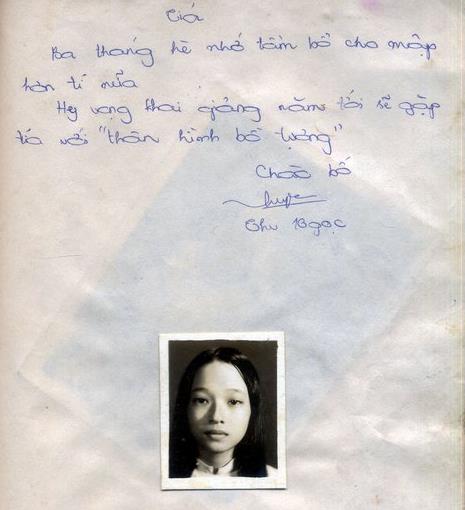 Giá
Ba tháng hè nhớ tẩm bổ cho mập
hơn tí nữa
Hy vọng khai giảng năm tới sẽ gặp
tá với "thân hình bồ tượng"
Chào bố
Thu Ngọc